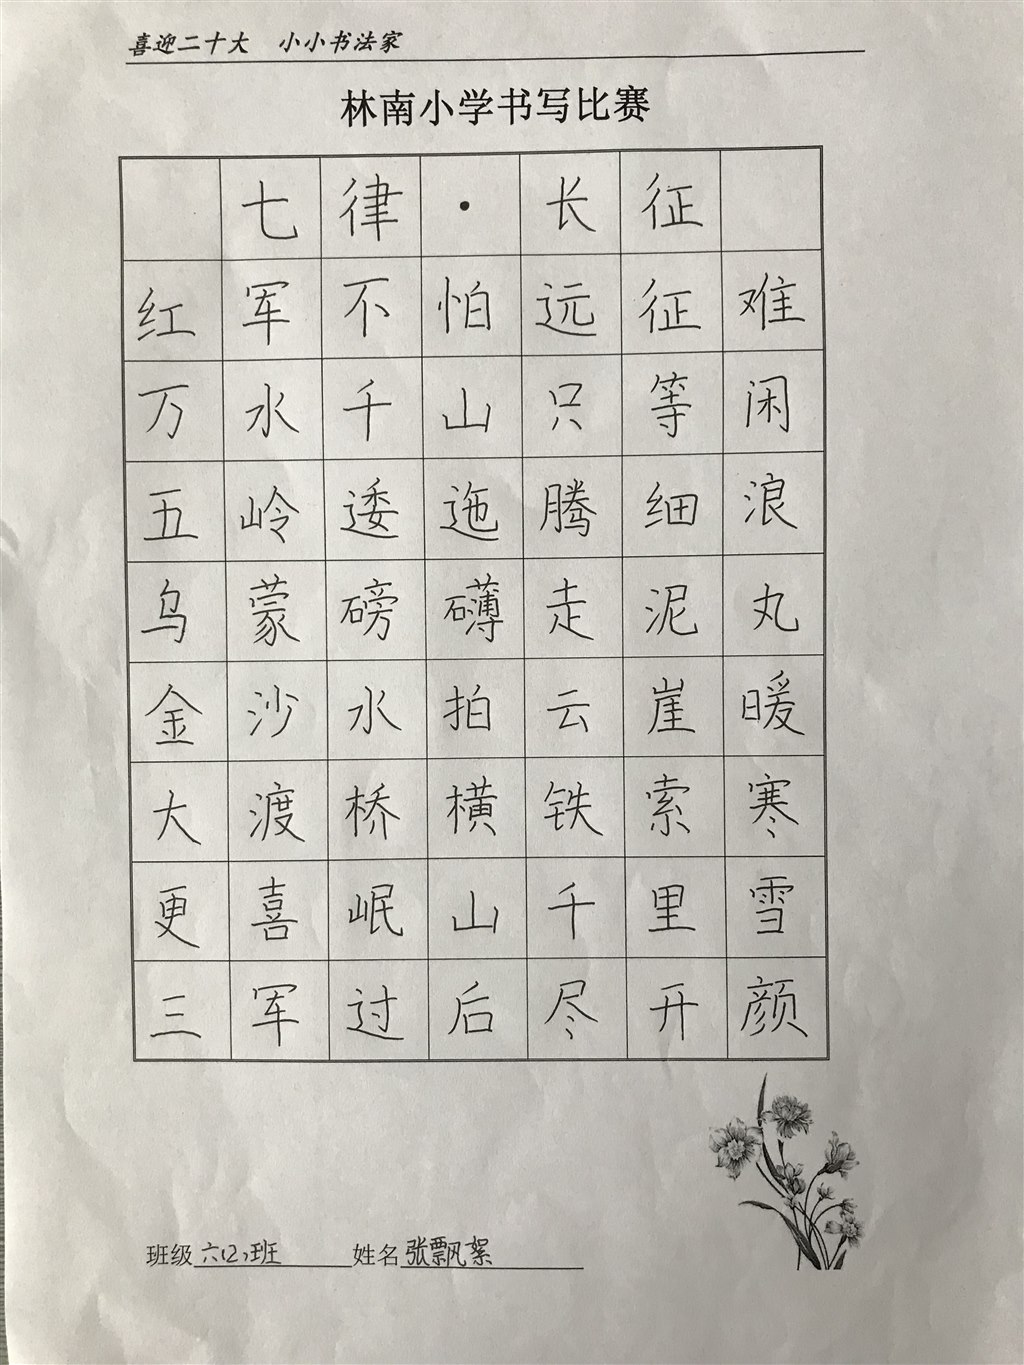 喜迎二十大 小小书法家
林南小学书写比赛
七律·长征
红军不怕远征难
万水千山只等闲
五岭逶迤腾细浪
乌蒙磅礴走泥丸
金沙水拍云崖暖
大渡桥横铁索寒
更喜岷山千里雪
三军过后尽开颜
班级六(2)班 姓名张飘絮